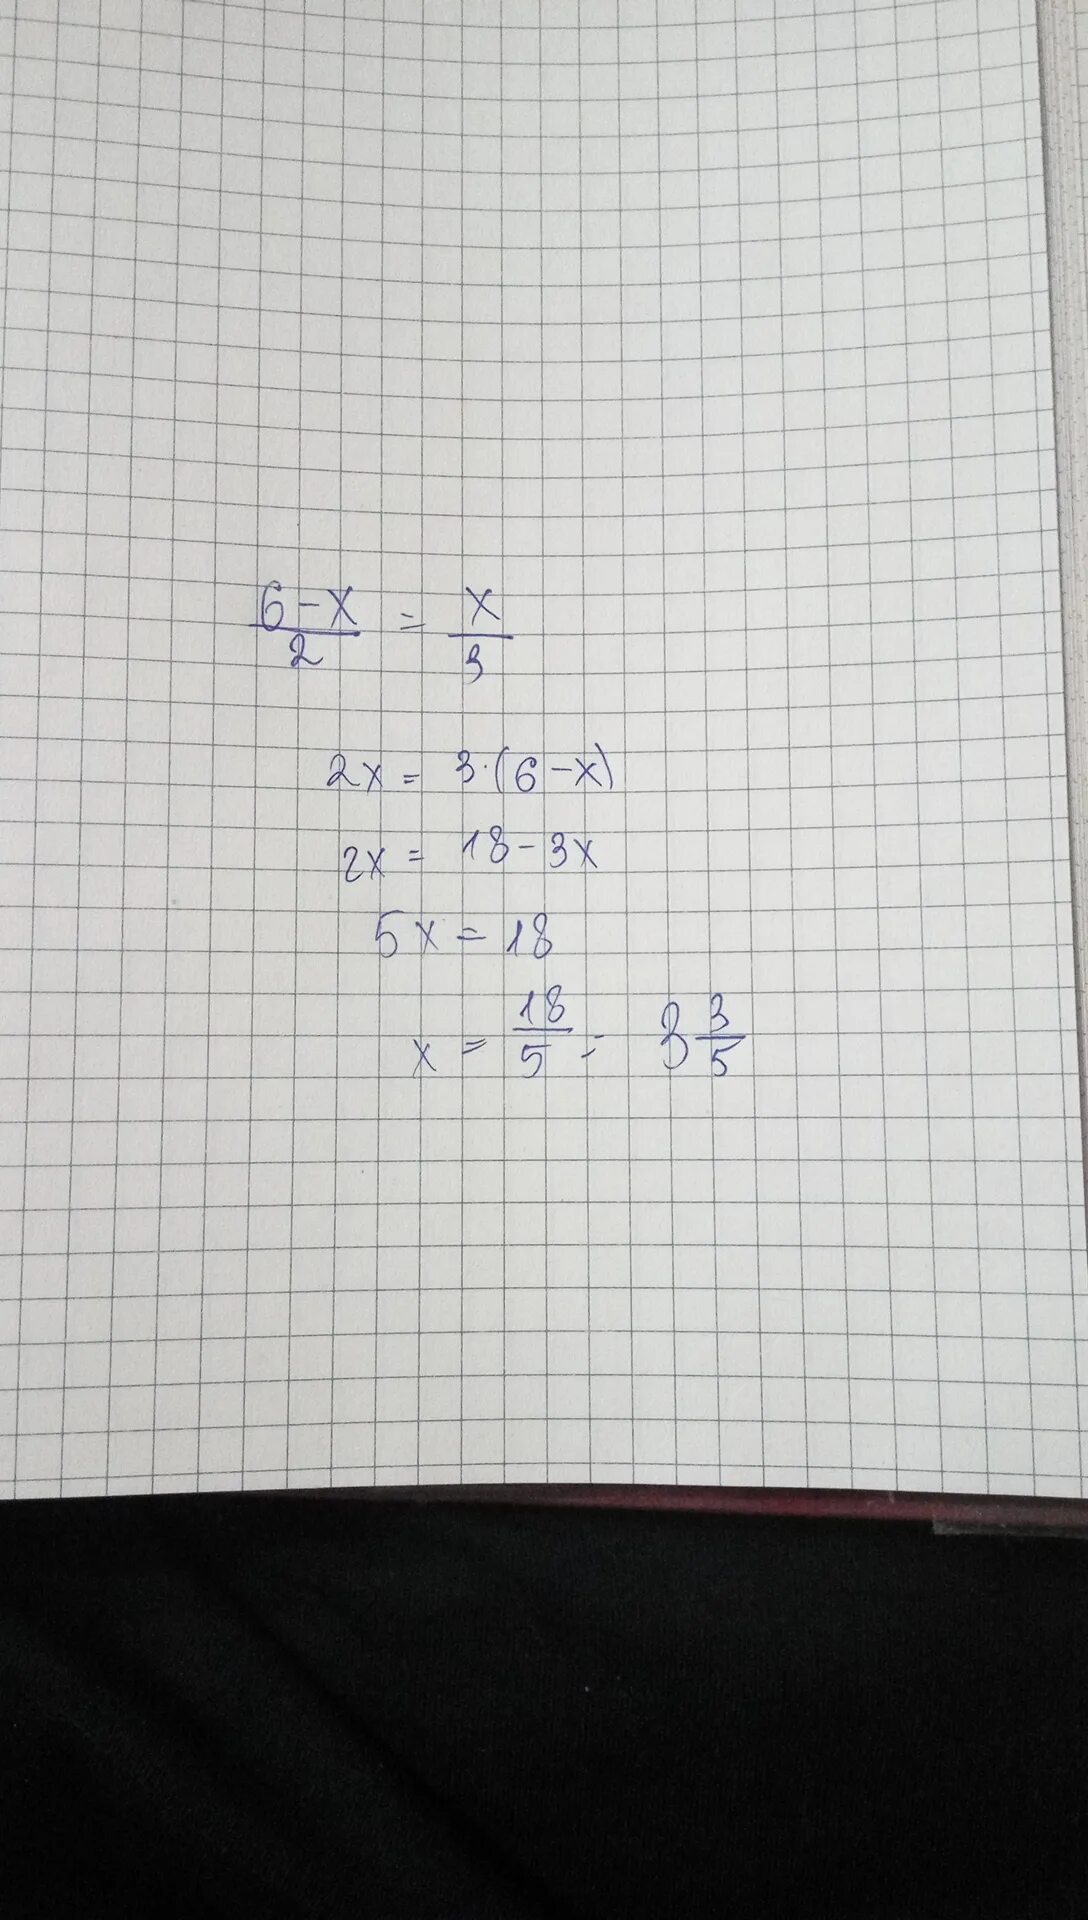 6-x/2 = x/3
2x = 3·(6-x)
2x = 18-3x
5x = 18
x = 18/5 = 3 3/5